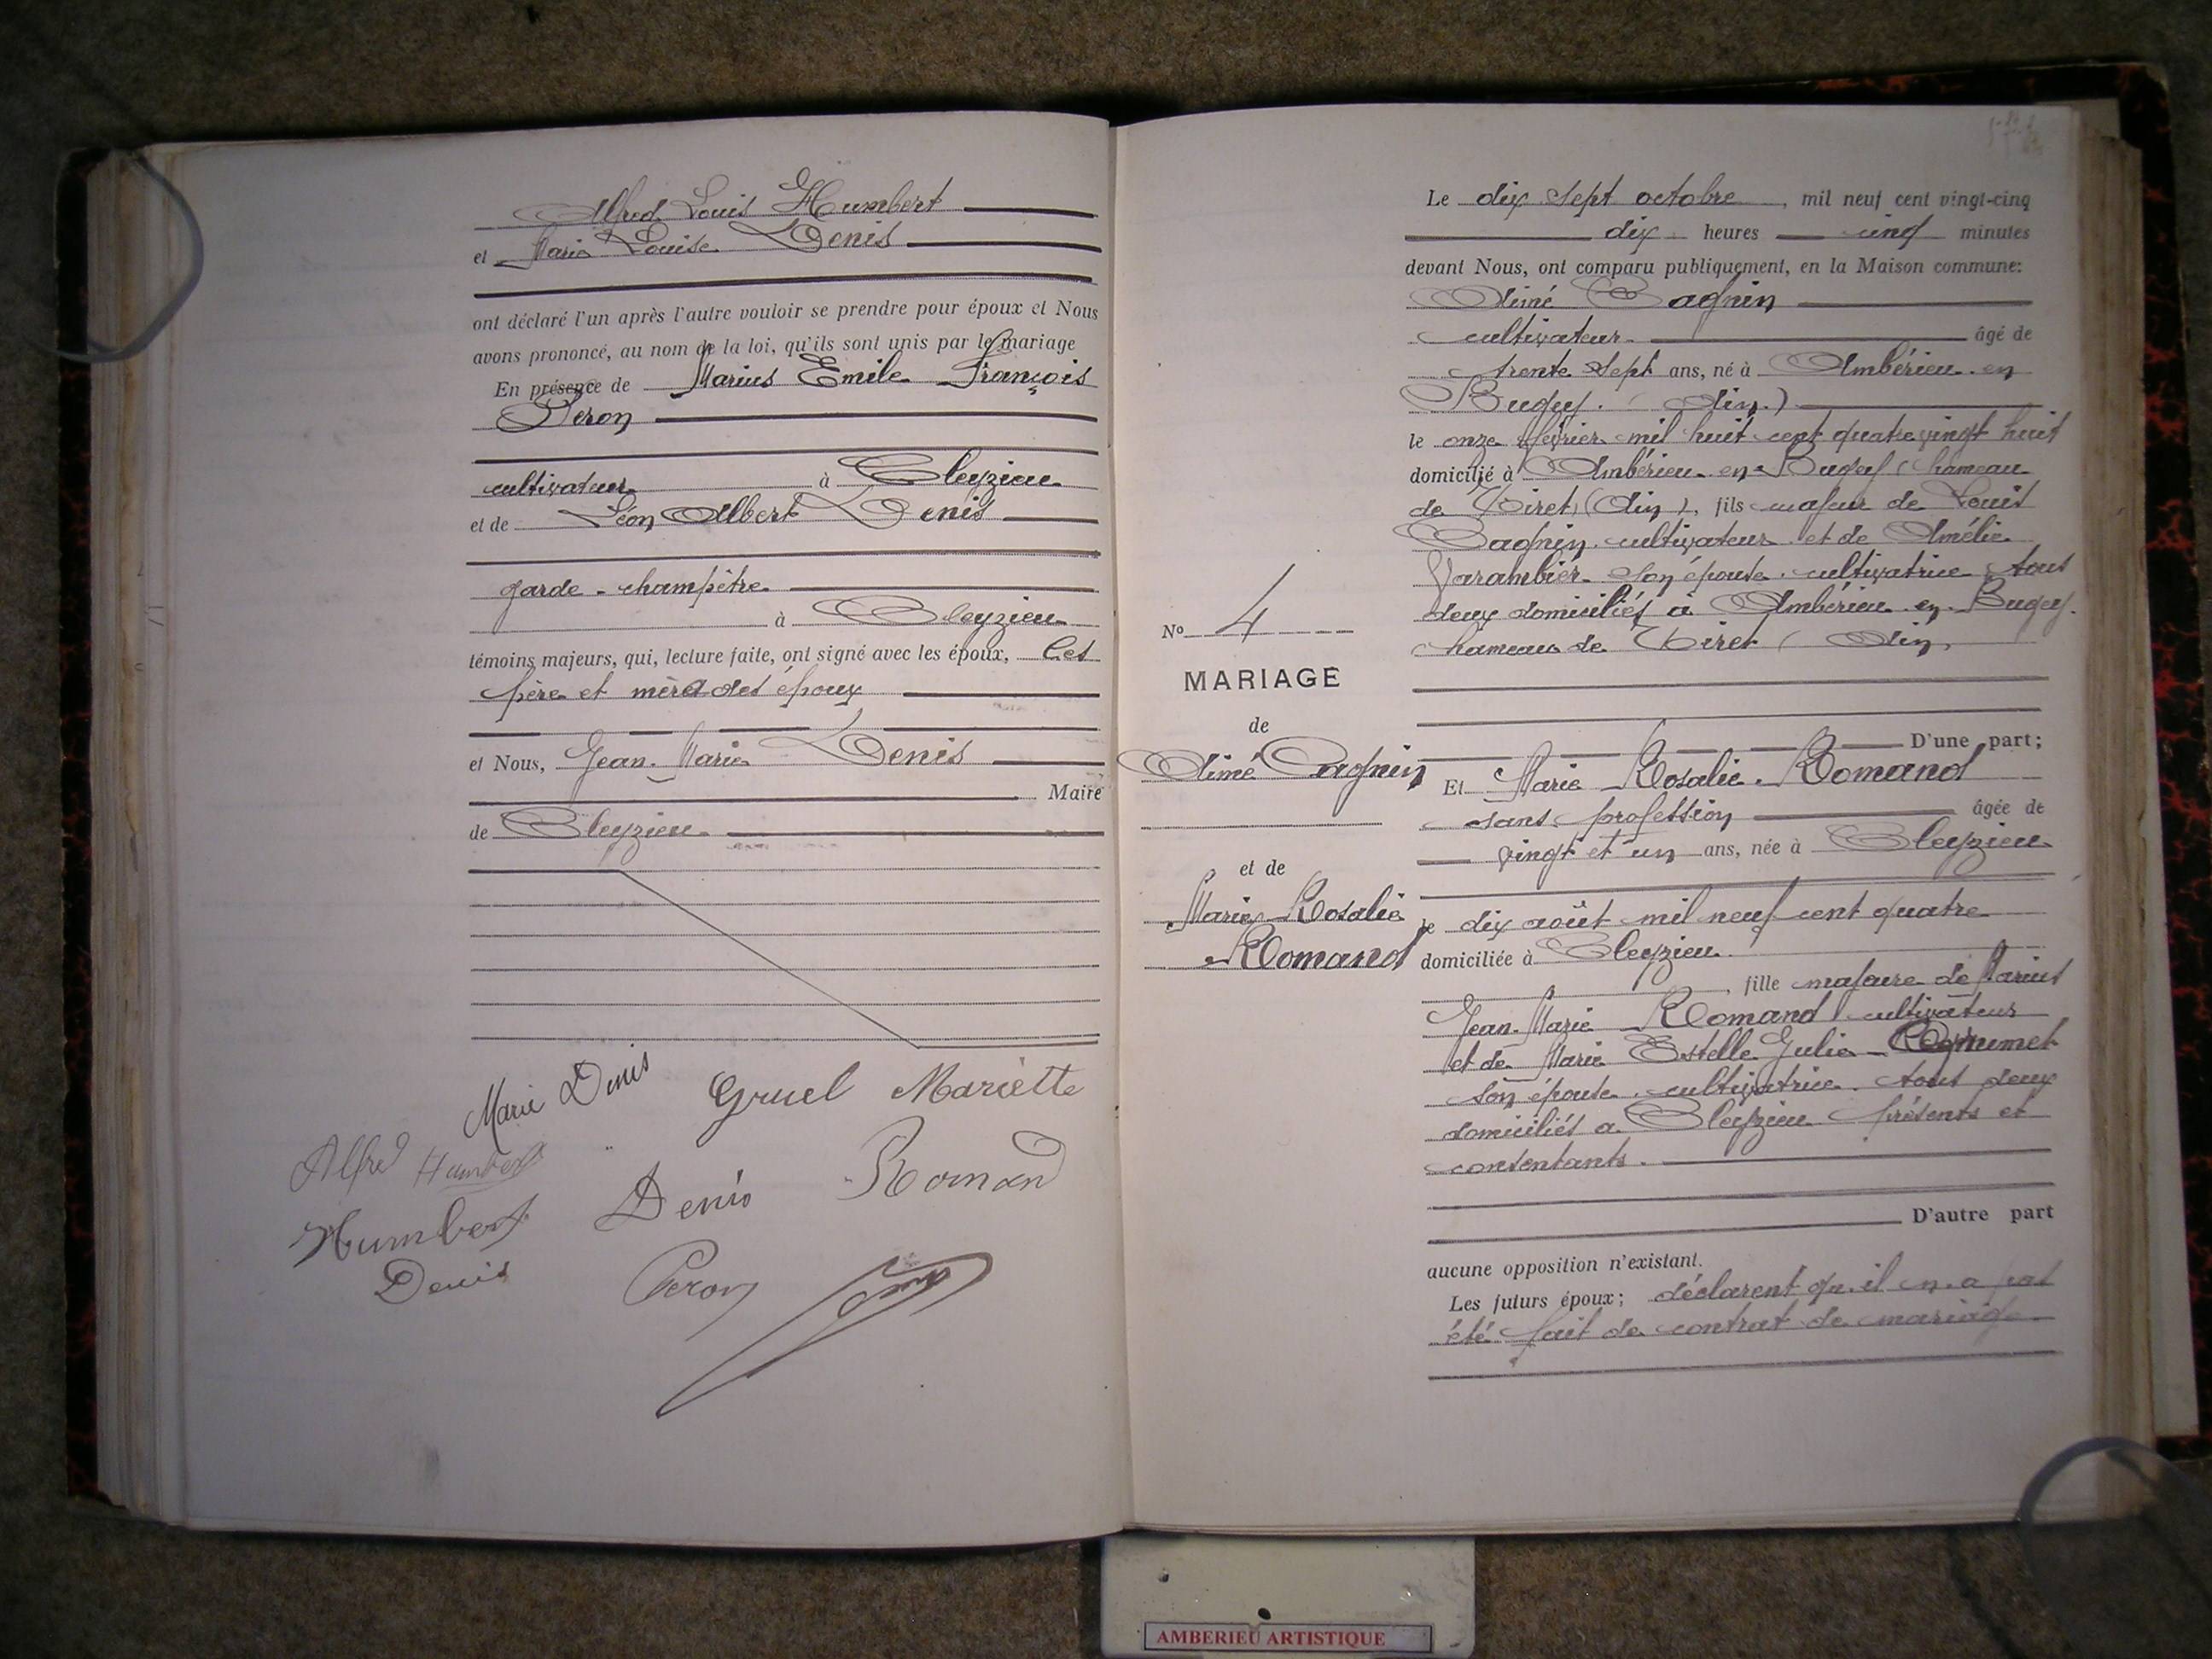 Alfred Louis Humbert
et Marie Louise Denis
ont déclaré l'un après l'autre vouloir se prendre pour époux et Nous
avons prononcé, au nom de la loi, qu'ils sont unis par le mariage
En présence de Marius Emile François
Peron
cultivateur à Cleyzieu
et de Léon Albert Denis
garde-champêtre
à Cleyzieu
témoins majeurs, qui, lecture faite, ont signé avec les époux, Les
père et mère des époux
et Nous, Jean-Marie Denis
Maire
de Cleyzieu
Marie Denis Gruel Mariette
Alfred Humbert
Humbert Denis Romand
Denis Peron
Le dix sept octobre, mil neuf cent vingt-cinq
dix heures cinq minutes
devant Nous, ont comparu publiquement, en la Maison commune:
Aimé Cagnin
cultivateur âgé de
trente sept ans, né à Ambérieu en
Bugey (Ain)
le onze février mil huit cent quatre vingt huit
domicilié à Ambérieu en Bugey (hameau
de Tiret) (Ain), fils majeur de Louis
Cagnin cultivateur et de Amélie
Varambier son épouse cultivatrice tous
deux domiciliés à Ambérieu en Bugey
hameau de Tiret (Ain)
D'une part;
Et Marie Rosalie Romand
sans profession âgée de
vingt et un ans, née à Cleyzieu
le dix août mil neuf cent quatre
domiciliée à Cleyzieu
fille majeure de Marius
Jean-Marie Romand cultivateur
et de Marie Estelle Julie
son épouse cultivatrice tous deux
domiciliés à Cleyzieu présents et
consentants.
D'autre part
aucune opposition n'existant.
Les futurs époux; déclarent qu'il n'a pas
été fait de contrat de mariage
No 4
MARIAGE
de
Aimé Cagnin
et de
Marie Rosalie
Romand
AMBERIEU ARTISTIQUE